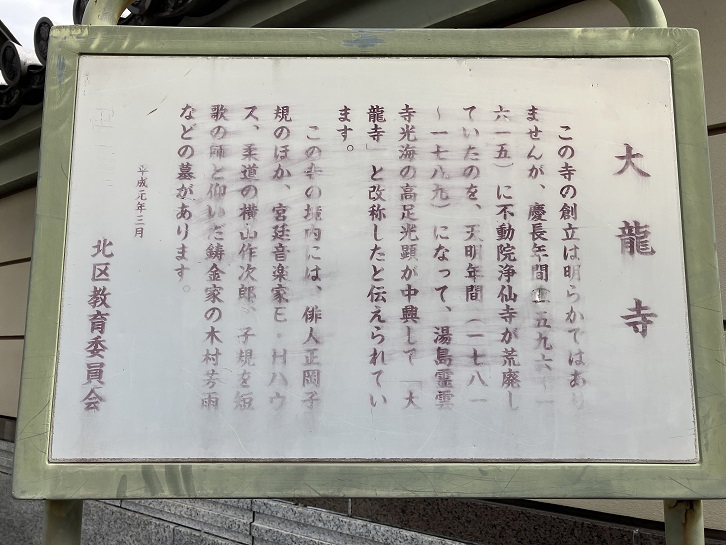 大龍寺
この寺の創立は明らかではあり
ませんが、慶長年間（一五九六〜一
六一五）に不動院浄仙寺が荒廃し
ていたのを、天明年間（一七八一
〜一七八九）になって、湯島霊雲
寺光海の高足光顕が中興して「大
龍寺」と改称したと伝えられてい
ます。
この寺の境内には、俳人正岡子
規のほか、宮廷音楽家E・Hハウ
ス、柔道の横山作次郎、子規を短
歌の師と仰いだ鋳金家の木村芳雨
などの墓があります。
平成元年三月
北区教育委員会